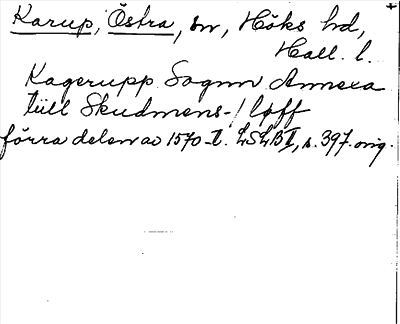 Karup, Östra, sn, Höks hd,
Hall. l.
Kagerupp Sognn Annexa
tiill Skudmens-/löff
förra delen av 1570-t. LSLB II, s. 397. orig.